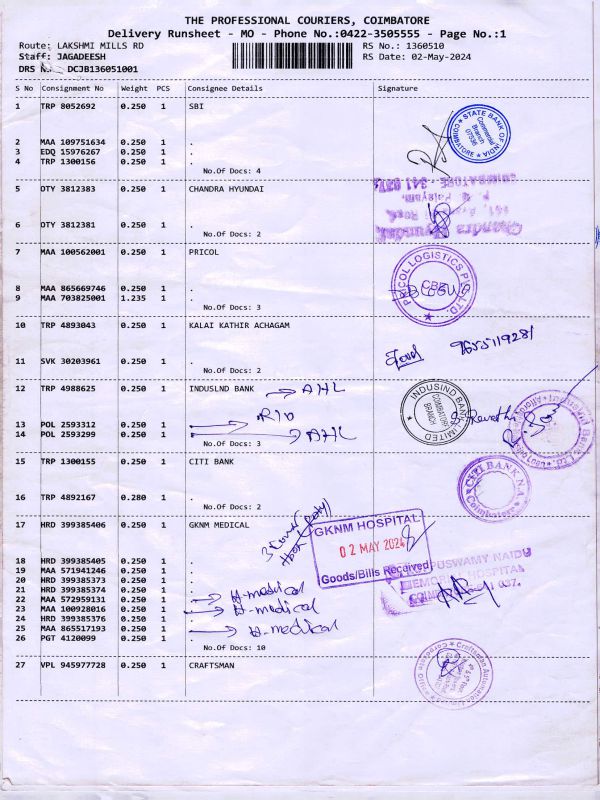 THE PROFESSIONAL COURIERS, COIMBATORE
Delivery Runsheet - MO - Phone No.:0422-3505555 - Page No.:1
Route: LAKSHMI MILLS RD RS No.: 1360510
Staff: JAGADEESH RS Date: 02-May-2024
DRS N DCJB136051001
S No Consignment No Weight PCS Consignee Details Signature
1 TRP 8052692 0.250 1 SBI
STATE BANK OF INDIA
Commercial Branch
07536
COIMBATORE
2 MAA 109751634 0.250 1 .
3 EDQ 15976267 0.250 1 .
4 TRP 1300156 0.250 1 .
No.Of Docs: 4
5 OTY 3812383 0.250 1 CHANDRA HYUNDAI
6 OTY 3812381 0.250 1 .
No.Of Docs: 2
7 MAA 100562001 0.250 1 PRICOL
PRICOL LOGISTICS PVT. LTD.
CBE
8 MAA 865669746 0.250 1 .
9 MAA 703825001 1.235 1 .
No.Of Docs: 3
10 TRP 4893043 0.250 1 KALAI KATHIR ACHAGAM
9655119281
11 SVK 30203961 0.250 1 .
No.Of Docs: 2
12 TRP 4988625 0.250 1 INDUSLND BANK → AHL
INDUSIND BANK LIMITED
COIMBATORE BRANCH
S. Revathi
13 POL 2593312 0.250 1 . → RIO
14 POL 2593299 0.250 1 . → AHL
No.Of Docs: 3
15 TRP 1300155 0.250 1 CITI BANK
CITI BANK N.A.
Coimbatore
16 TRP 4892167 0.280 1 .
No.Of Docs: 2
17 HRD 399385406 0.250 1 GKNM MEDICAL
GKNM HOSPITAL
02 MAY 2024
Goods/Bills Received
18 HRD 399385405 0.250 1 .
19 MAA 571941246 0.250 1 .
20 HRD 399385373 0.250 1 .
21 HRD 399385374 0.250 1 .
22 MAA 572959131 0.250 1 . → H-medical
23 MAA 100928016 0.250 1 . → H-medical
24 HRD 399385376 0.250 1 .
25 MAA 865517193 0.250 1 . → H-medical
26 PGT 4120099 0.250 1 .
No.Of Docs: 10
PUSWAMY NAIDU
MEMORIAL HOSPITAL
27 VPL 945977728 0.250 1 CRAFTSMAN
Craftsman Automation